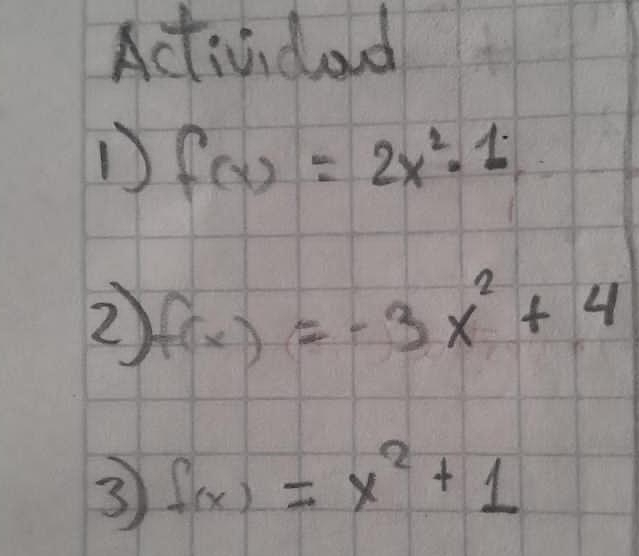 Actividad
1) f(x) = 2x² - 1
2) f(x) = - 3x² + 4
3) f(x) = x² + 1